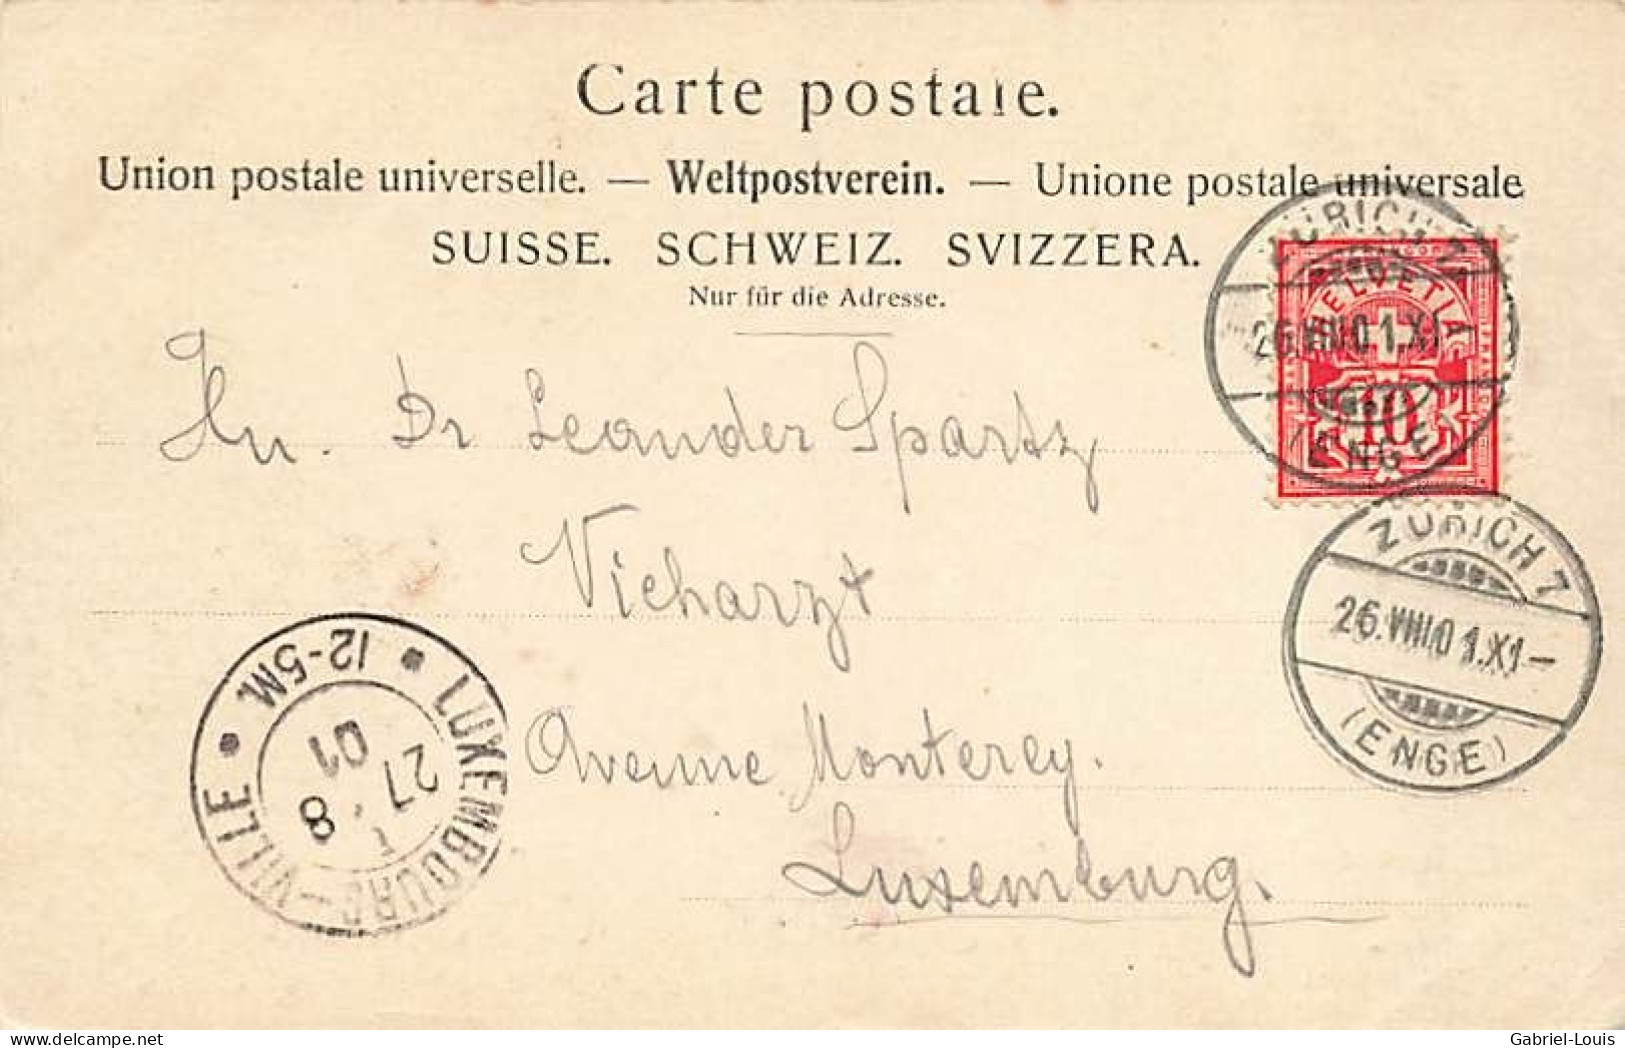 Carte postale.
Union postale universelle. — Weltpostverein. — Unione postale universale
SUISSE. SCHWEIZ. SVIZZERA.
Nur für die Adresse.
ZÜRICH 7
HELVETIA
26.VIII.01.XI–
10
(ENGE)
Hn. Dr Leander Spartz
Vieharzt
Avenue Monterey.
Luxemburg.
ZÜRICH 7
26.VIII.01.XI–
(ENGE)
LUXEMBOURG-VILLE
12-5M.
27 8
01
delcampe.net
Gabriel-Louis